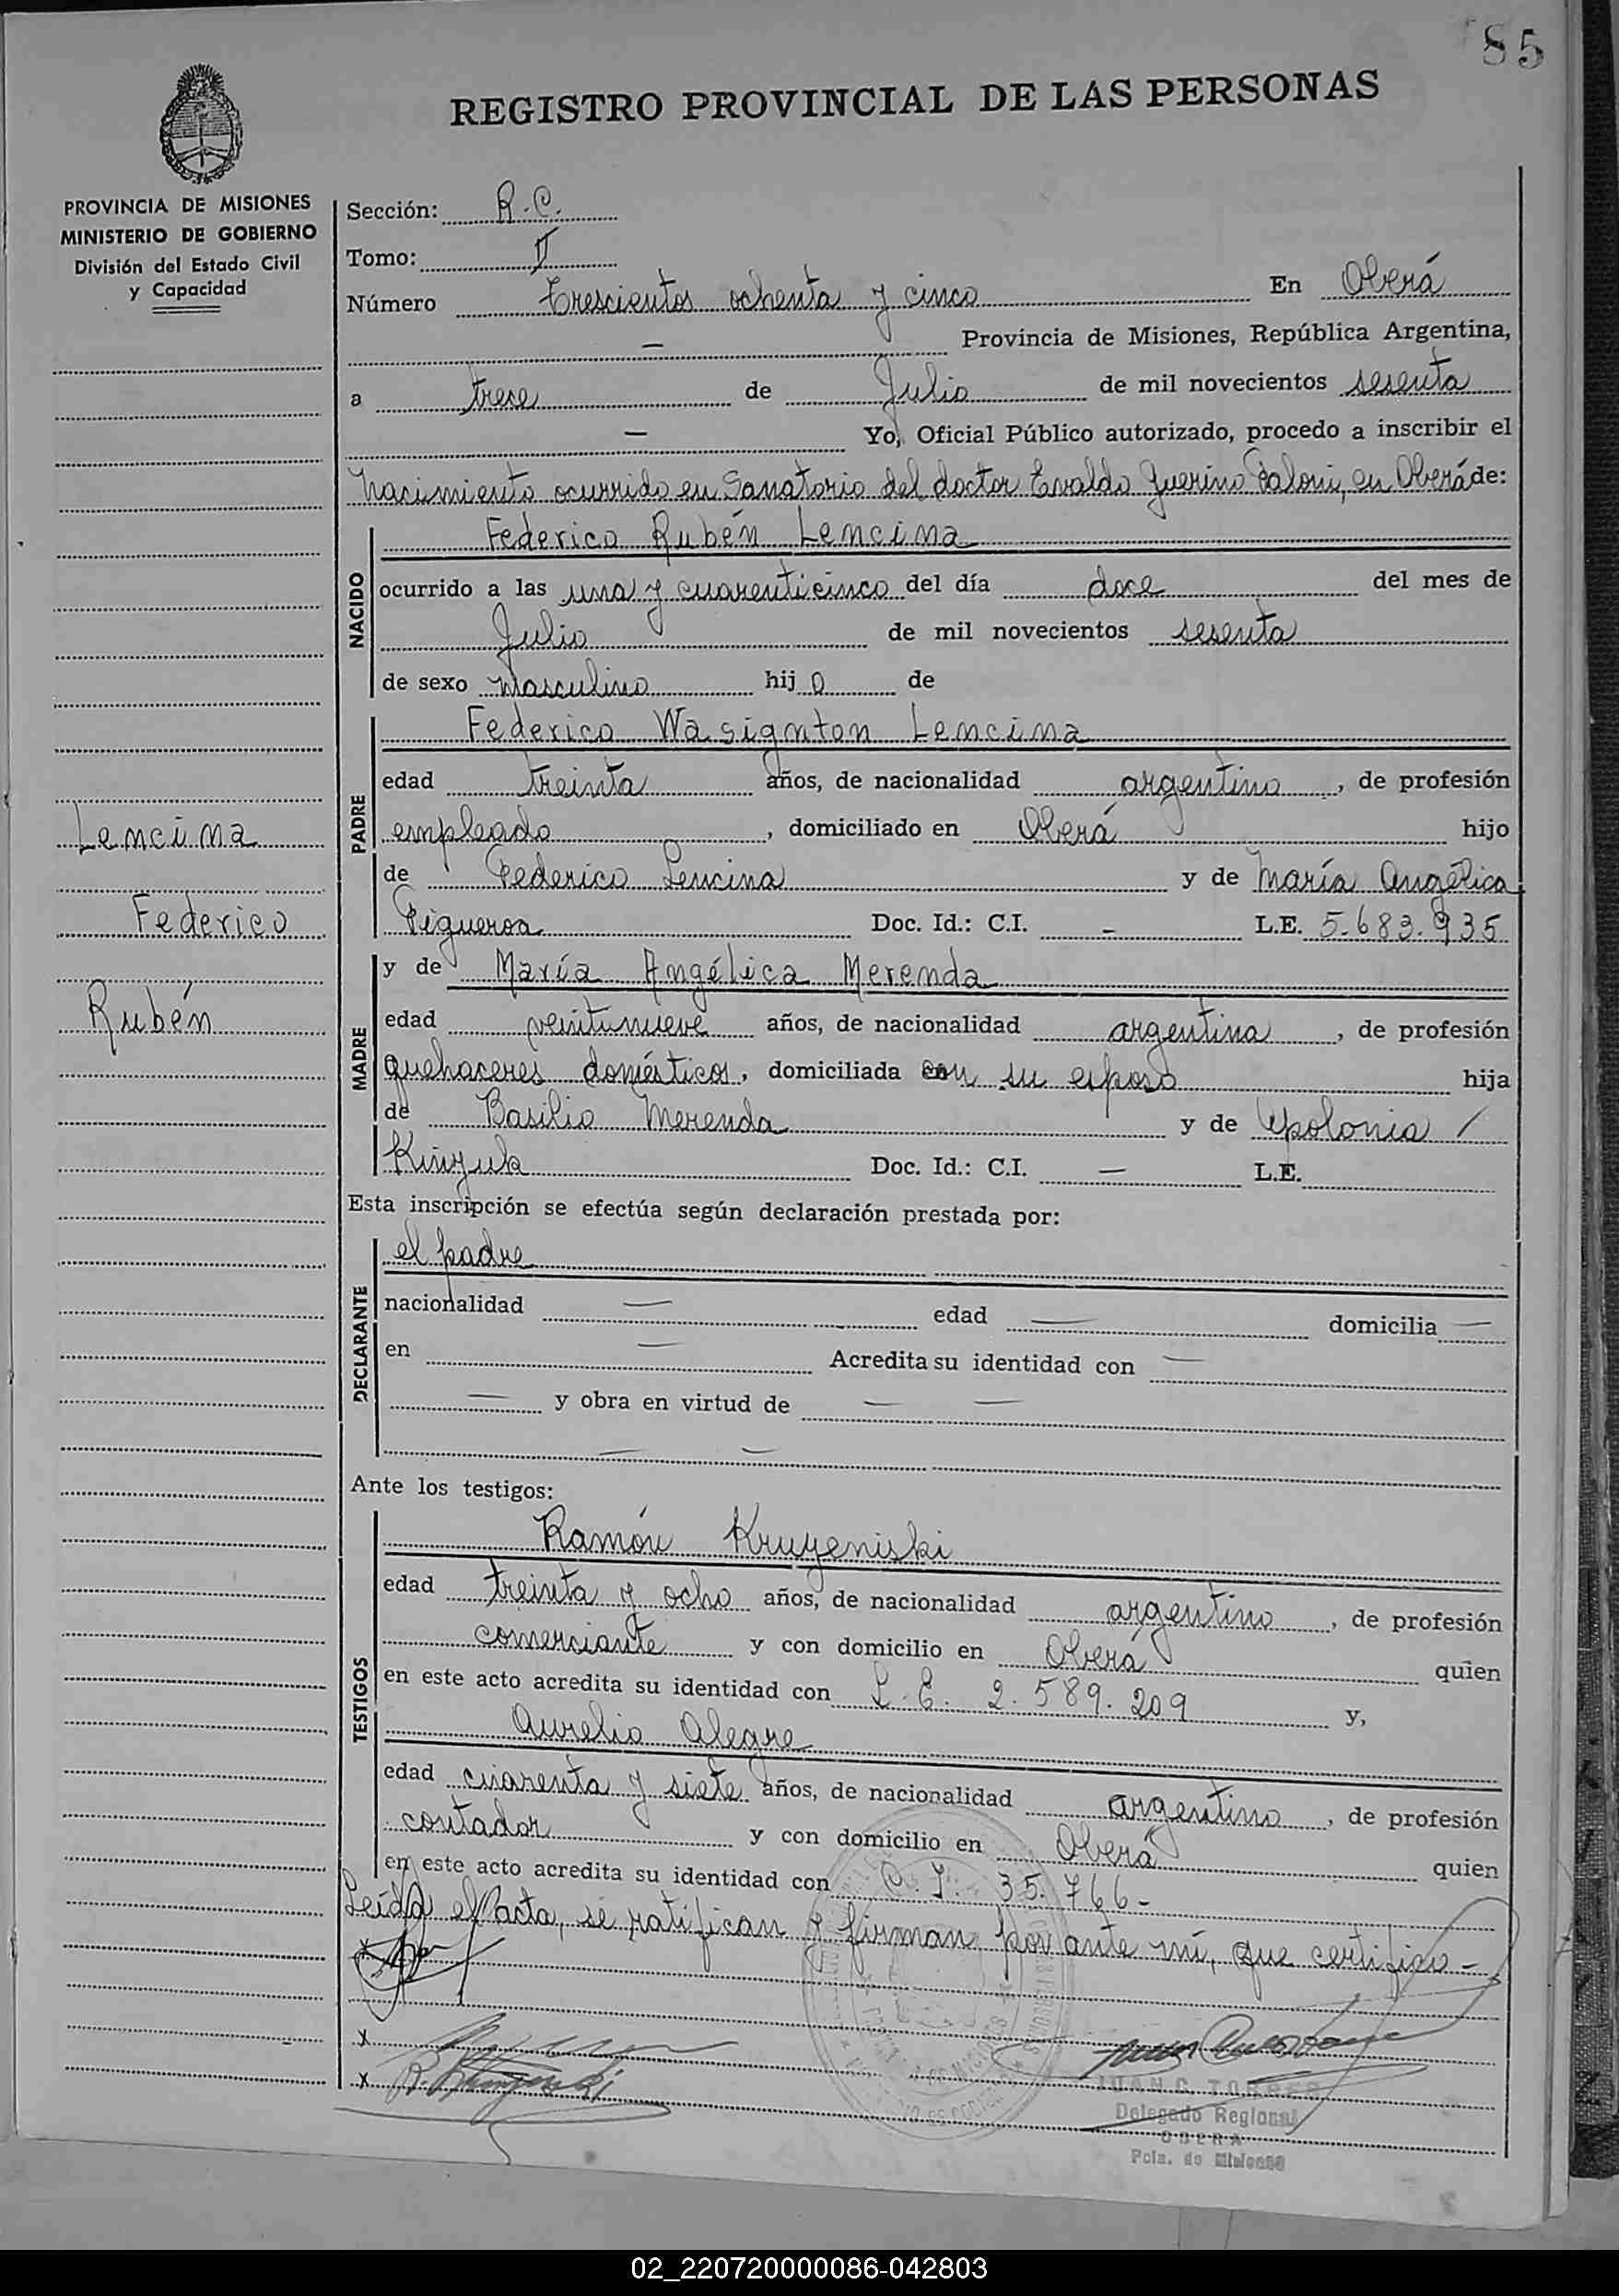 85
REGISTRO PROVINCIAL DE LAS PERSONAS
PROVINCIA DE MISIONES
MINISTERIO DE GOBIERNO
División del Estado Civil
y Capacidad
Sección: R.C.
Tomo: II
Número Trescientos ochenta y cinco En Oberá
— Provincia de Misiones, República Argentina,
a trece de Julio de mil novecientos sesenta
— Yo, Oficial Público autorizado, procedo a inscribir el
Nacimiento ocurrido en Sanatorio del doctor Evaldo Guerino en Oberá de:
NACIDO
Federico Rubén Lencina
ocurrido a las una y cuarenticinco del día doce del mes de
Julio de mil novecientos sesenta
de sexo masculino hijo de
PADRE
Federico Wasignton Lencina
edad treinta años, de nacionalidad argentino, de profesión
empleado, domiciliado en Oberá hijo
de Federico Lencina y de María Angélica
Figueroa Doc. Id.: C.I. - L.E. 5.683.935
Lencina
Federico
Rubén
MADRE
y de María Angélica Merenda
edad veintinueve años, de nacionalidad argentina, de profesión
quehaceres domésticos, domiciliada con su esposo hija
de Basilio Merenda y de Apolonia /
Doc. Id.: C.I. — L.E.
Esta inscripción se efectúa según declaración prestada por:
DECLARANTE
el padre
nacionalidad — edad — domicilia —
en — Acredita su identidad con —
— y obra en virtud de — —
— —
Ante los testigos:
TESTIGOS
Ramón Kruyeniski
edad treinta y ocho años, de nacionalidad argentino, de profesión
comerciante y con domicilio en Oberá quien
en este acto acredita su identidad con L.E. 2.589.209 y,
Aurelio Alegre
edad cuarenta y siete años, de nacionalidad argentino, de profesión
contador y con domicilio en Oberá quien
en este acto acredita su identidad con C.I. 35.766-
Leída el acta, se ratifican y firman por ante mí, que certifico-
x
x
JUAN C. TORRES
Delegado Regional
OBERA
Pcia. de Misiones
02_220720000086-042803